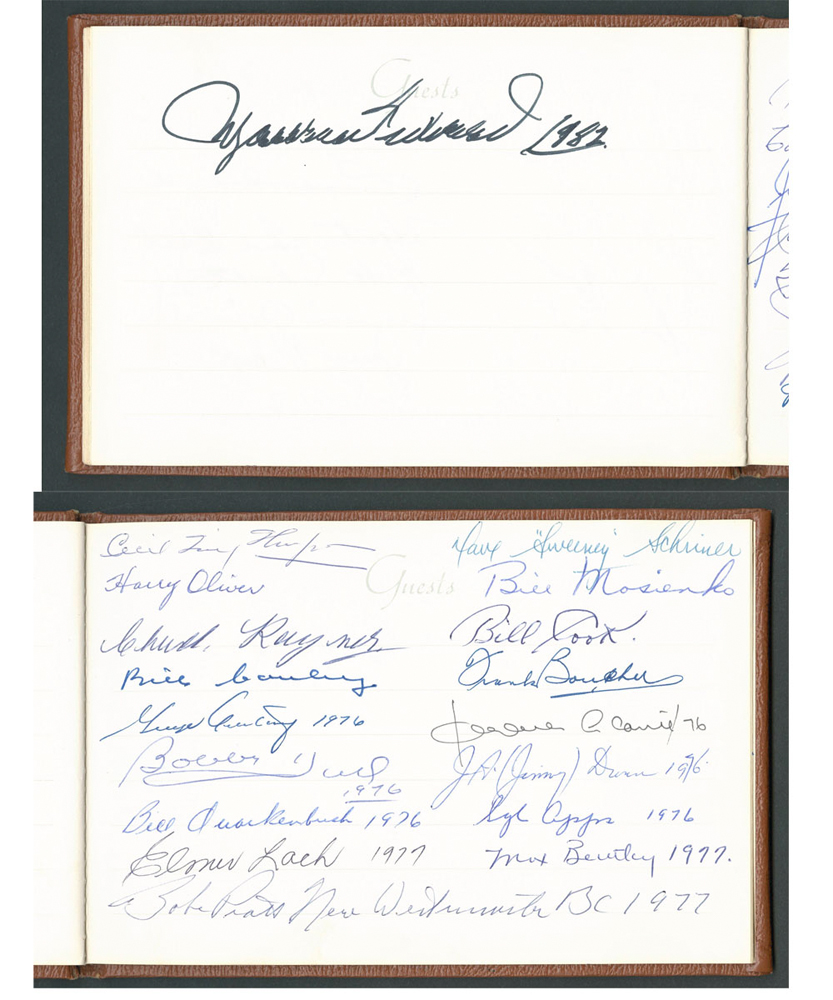 Guests
Maurice Richard 1982
Cecil Tiny Thompson
Harry Oliver
Chuck Rayner
Bill Cowley
1976
Bobby Hull
1976
Bill Quackenbush 1976
Elmer Lach 1977
Guests
Dave "Sweeney" Schriner
Bill Mosienko
Bill Cook.
Frank Boucher
76
J.A. (Jimmy) Dunn 1976
Syl Apps 1976
Max Bentley 1977.
Babe Pratt New Westminster BC 1977